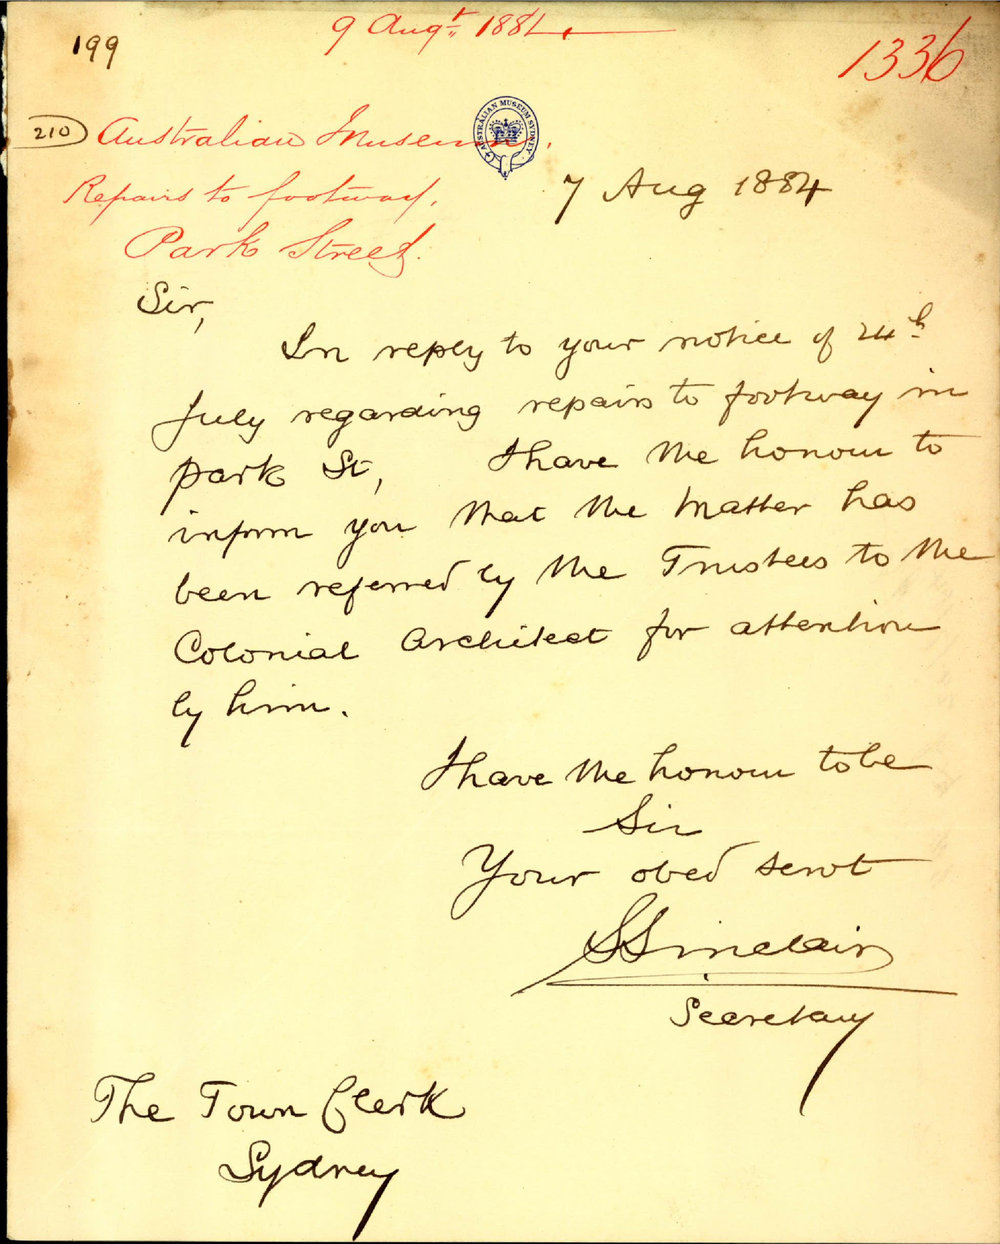 199
9 Augt 1884.
1336
210
Australian Museum.
AUSTRALIAN MUSEUM SYDNEY
Repairs to footway,
Park Street.
7 Aug 1884
Sir,
In reply to your notice of 24th
July regarding repairs to footway in
Park St, I have the honour to
inform you that the matter has
been referred by the Trustees to the
Colonial Architect for attention
by him.
I have the honour to be
Sir
Your obed servt
S Sinclair
Secretary
The Town Clerk
Sydney